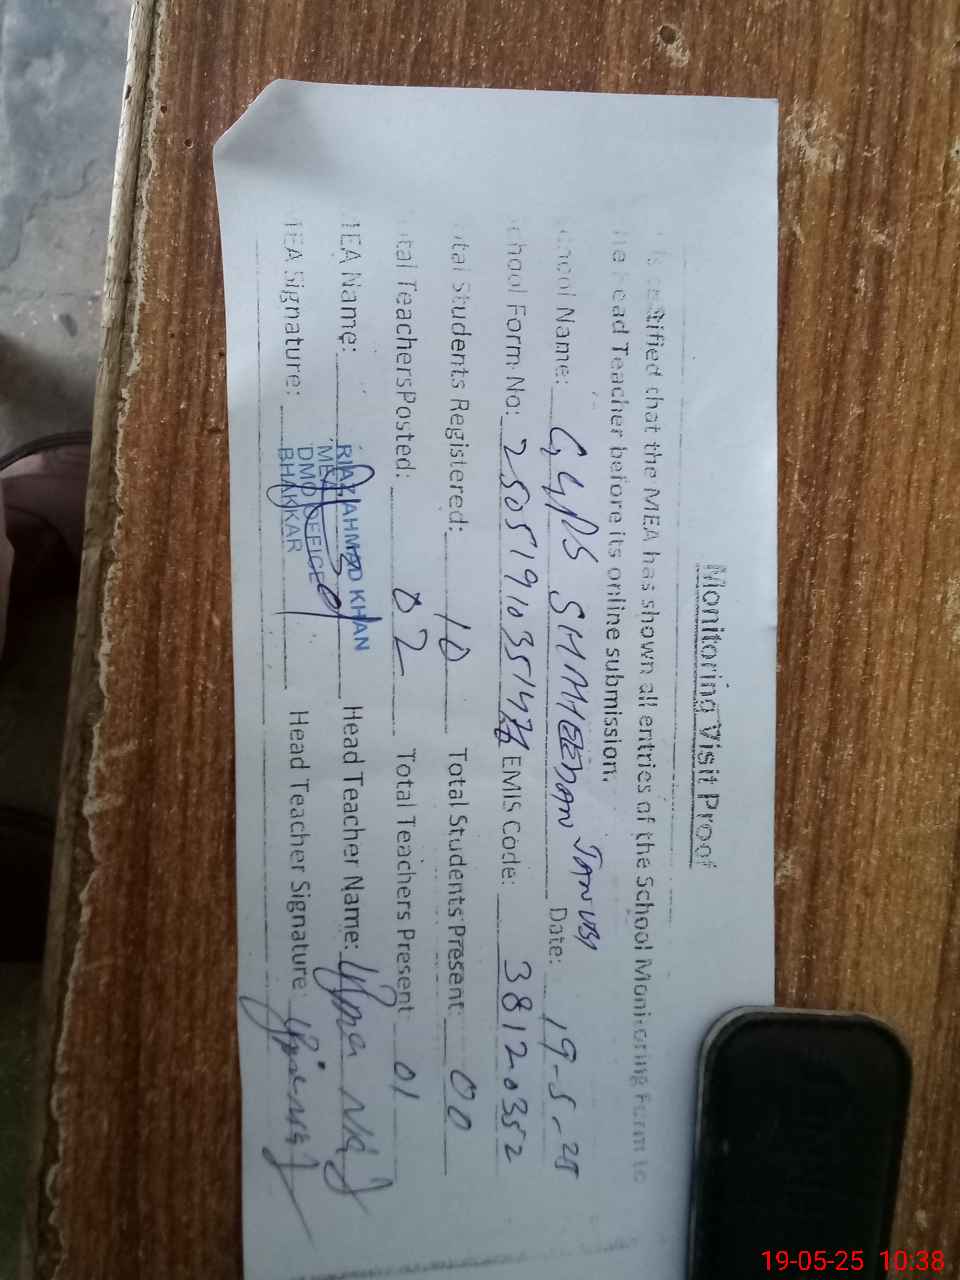 Monitoring Visit Proof
is certified that the MEA has shown all entries of the School Monitoring Form to
he Head Teacher before its online submission.
chool Name: GGPS SHAHEEDAN JANUBI Date: 19-5-25
chool Form No: EMIS Code: 38120352
tal Students Registered: 10 Total Students Present: 00
tal Teachers Posted: 02 Total Teachers Present 01
EA Name: RIAZ AHMED KHAN Head Teacher Name:
MEA
DMO OFFICE
BHAKKAR
EA Signature: Head Teacher Signature:
19-05-25 10:38